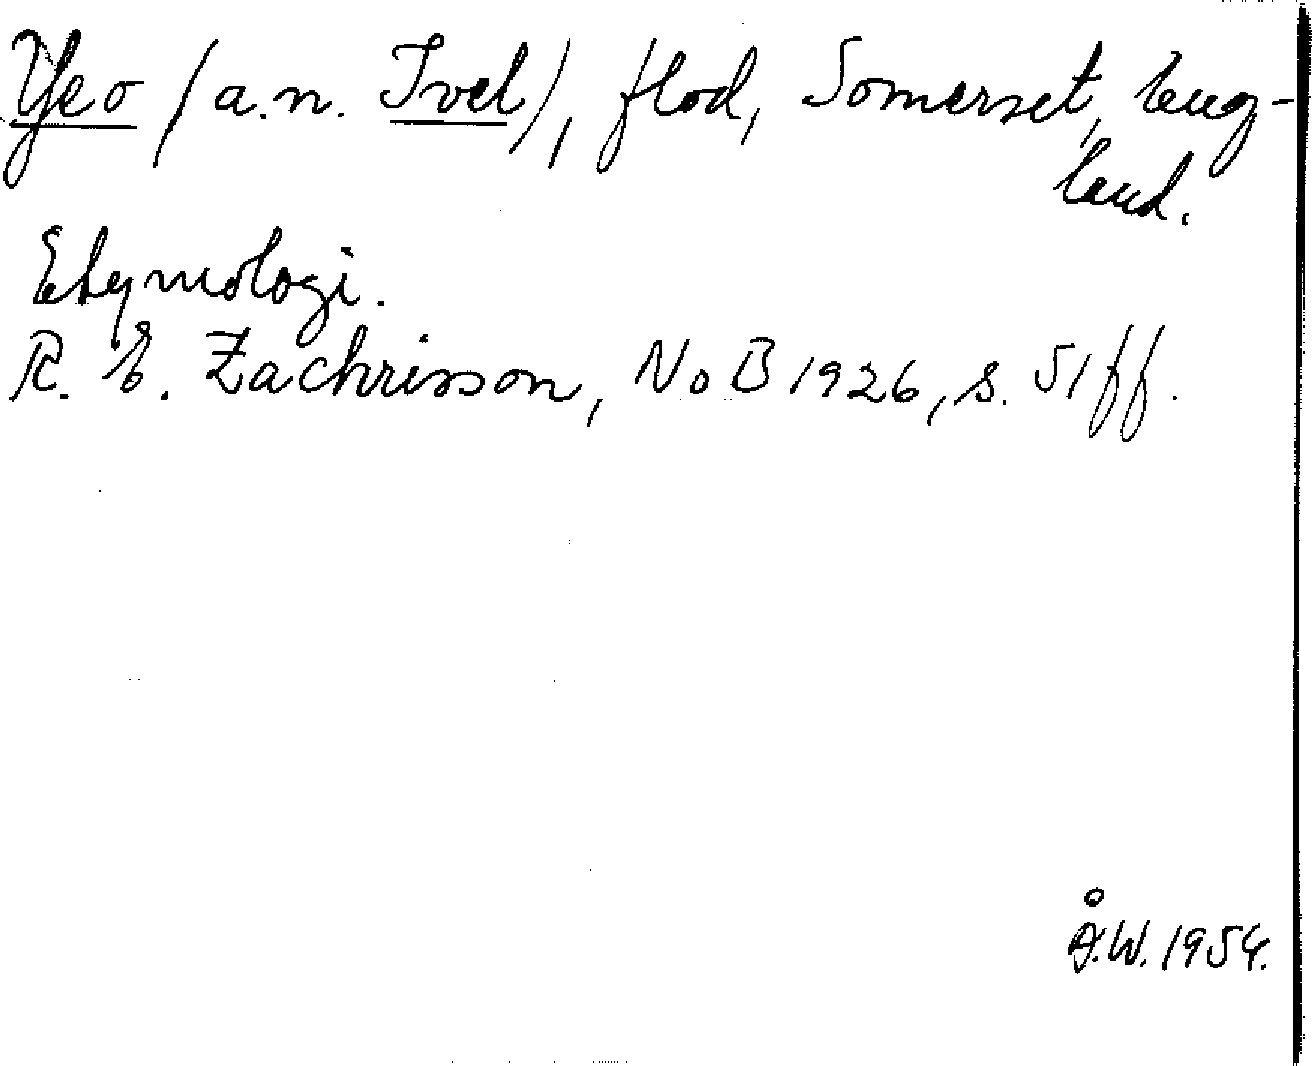 Yeo (a.n. Ivel), flod, Somerset, Eng-
land.
Etymologi.
R. E. Zachrisson, NoB 1926, s. 51 ff.
Å.W. 1954.